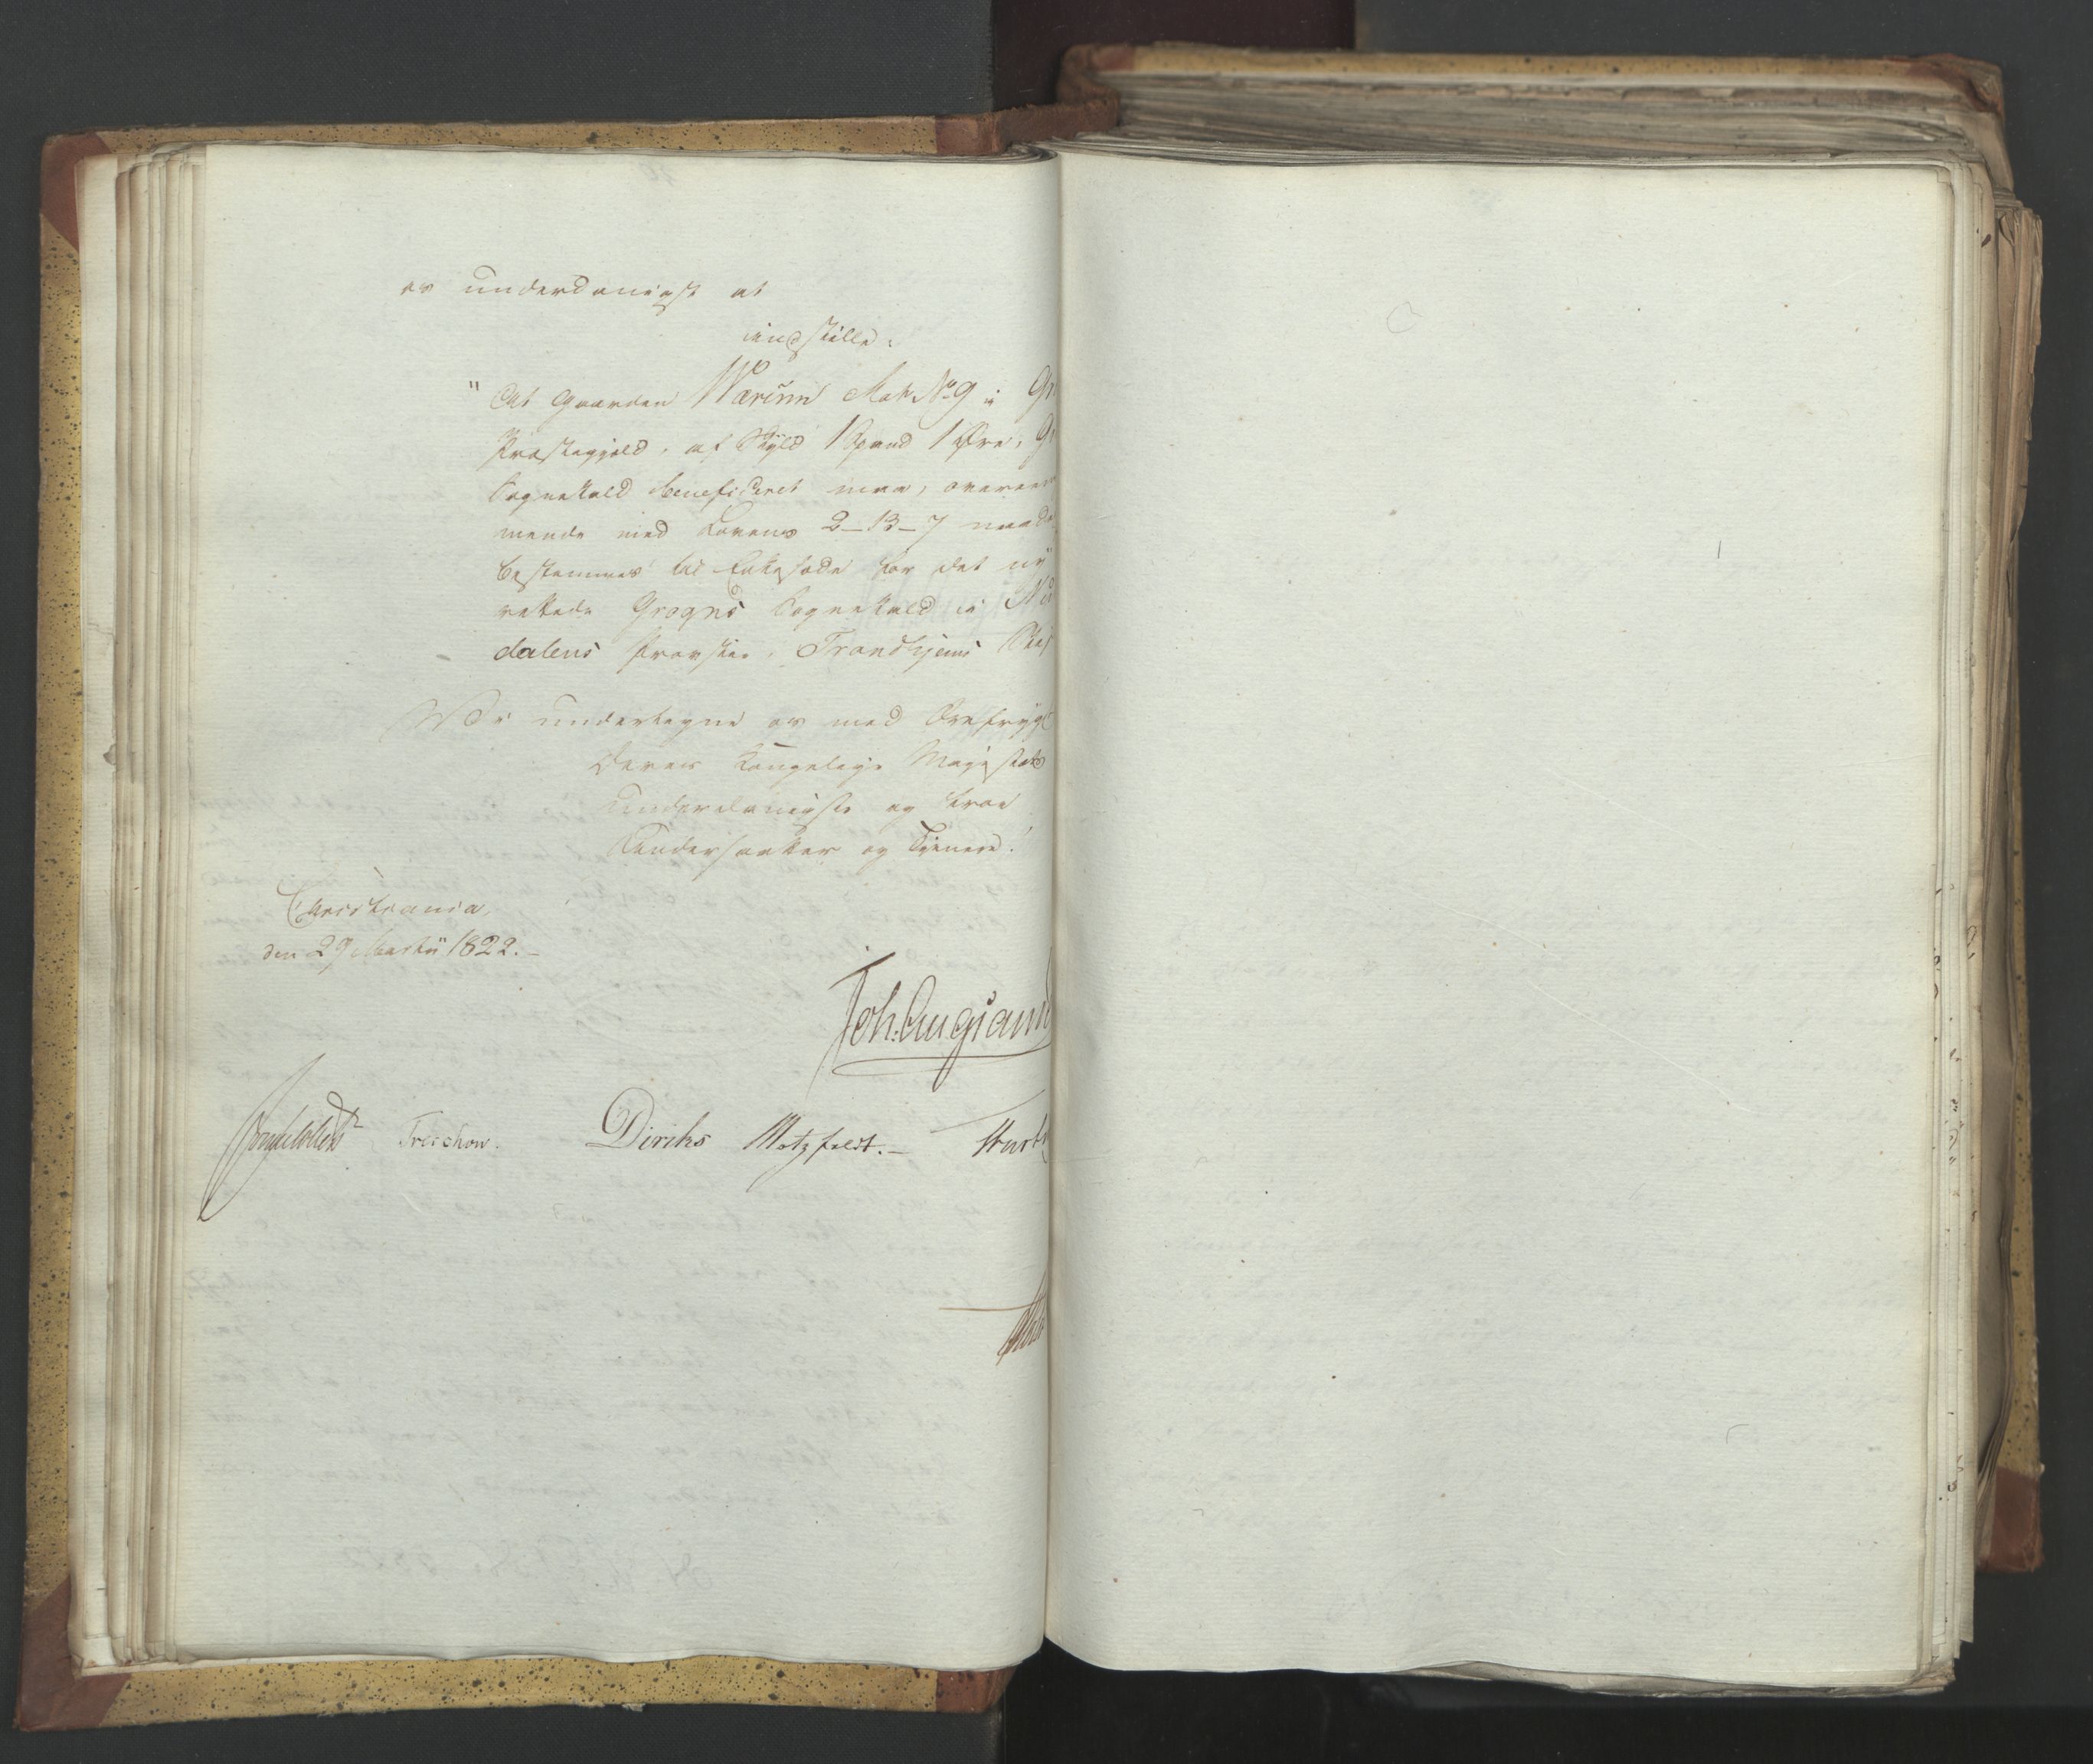 os underdanigst at
indstille:
"At Gaarden Værum Mat. No 9 i Gr
Præstegjeld, af Skyld 1 Spand 1 Øre, Gr
Sognekald beneficeret maa, overeens
mende med Lovens 2-13-7 naadigst
bestemmes til Enkesæde for det ny
rettede Grogns Sognekald i Nu
dalens Provstie, Trondhjems Stift
Vi undertegne os med Ærefrygt
Deres Kongelige Majestæts
underdanigste og troe
Undersaatter og Tjenere!
Christiania,
den 29 Martii 1822.-
Joh. Aug Sand
Sommerhielm Treschow. Diriks Motzfeldt.-